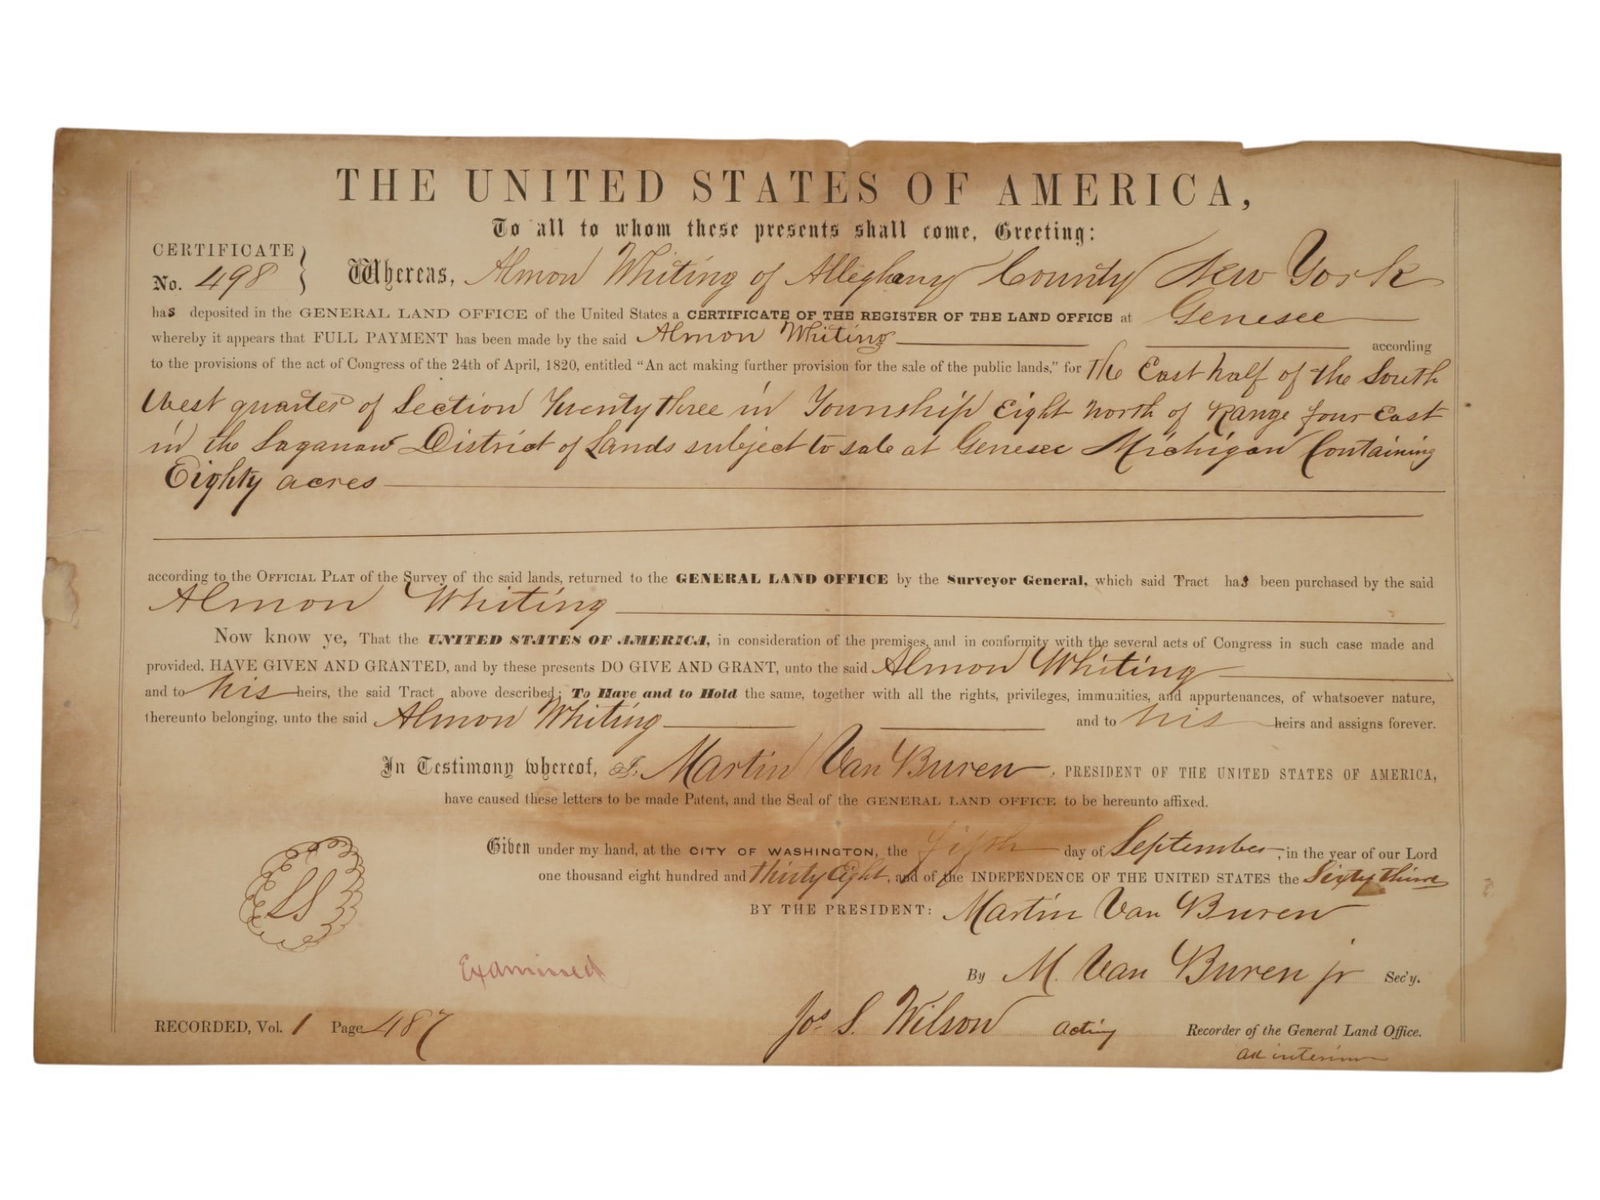 THE UNITED STATES OF AMERICA,
To all to whom these presents shall come, Greeting:
CERTIFICATE
No. 498
Whereas, Almon Whiting of Alleghany County New York
has deposited in the GENERAL LAND OFFICE of the United States a CERTIFICATE OF THE REGISTER OF THE LAND OFFICE at Genesee
whereby it appears that FULL PAYMENT has been made by the said Almon Whiting according
to the provisions of the act of Congress of the 24th of April, 1820, entitled "An act making further provision for the sale of the public lands," for The East half of the South
West quarter of Section Twenty three in Township Eight North of Range four East
in the Saganaw District of Lands subject to sale at Genesee Michigan Containing
Eighty acres
according to the OFFICIAL PLAT of the Survey of the said lands, returned to the GENERAL LAND OFFICE by the Surveyor General, which said Tract has been purchased by the said
Almon Whiting
Now know ye, That the UNITED STATES OF AMERICA, in consideration of the premises, and in conformity with the several acts of Congress in such case made and
provided, HAVE GIVEN AND GRANTED, and by these presents DO GIVE AND GRANT, unto the said Almon Whiting
and to his heirs, the said Tract above described; To Have and to Hold the same, together with all the rights, privileges, immunities, and appurtenances, of whatsoever nature,
thereunto belonging, unto the said Almon Whiting and to his heirs and assigns forever.
In Testimony whereof, I, Martin Van Buren, PRESIDENT OF THE UNITED STATES OF AMERICA,
have caused these letters to be made Patent, and the Seal of the GENERAL LAND OFFICE to be hereunto affixed.
Given under my hand, at the CITY OF WASHINGTON, the Fifth day of September, in the year of our Lord
one thousand eight hundred and thirty Eight, and of the INDEPENDENCE OF THE UNITED STATES the Sixty third
BY THE PRESIDENT: Martin Van Buren
LS
Examined
By M. Van Buren jr Sec'y.
RECORDED, Vol. 1 Page 487
Jos. S. Wilson acting Recorder of the General Land Office.
ad interim